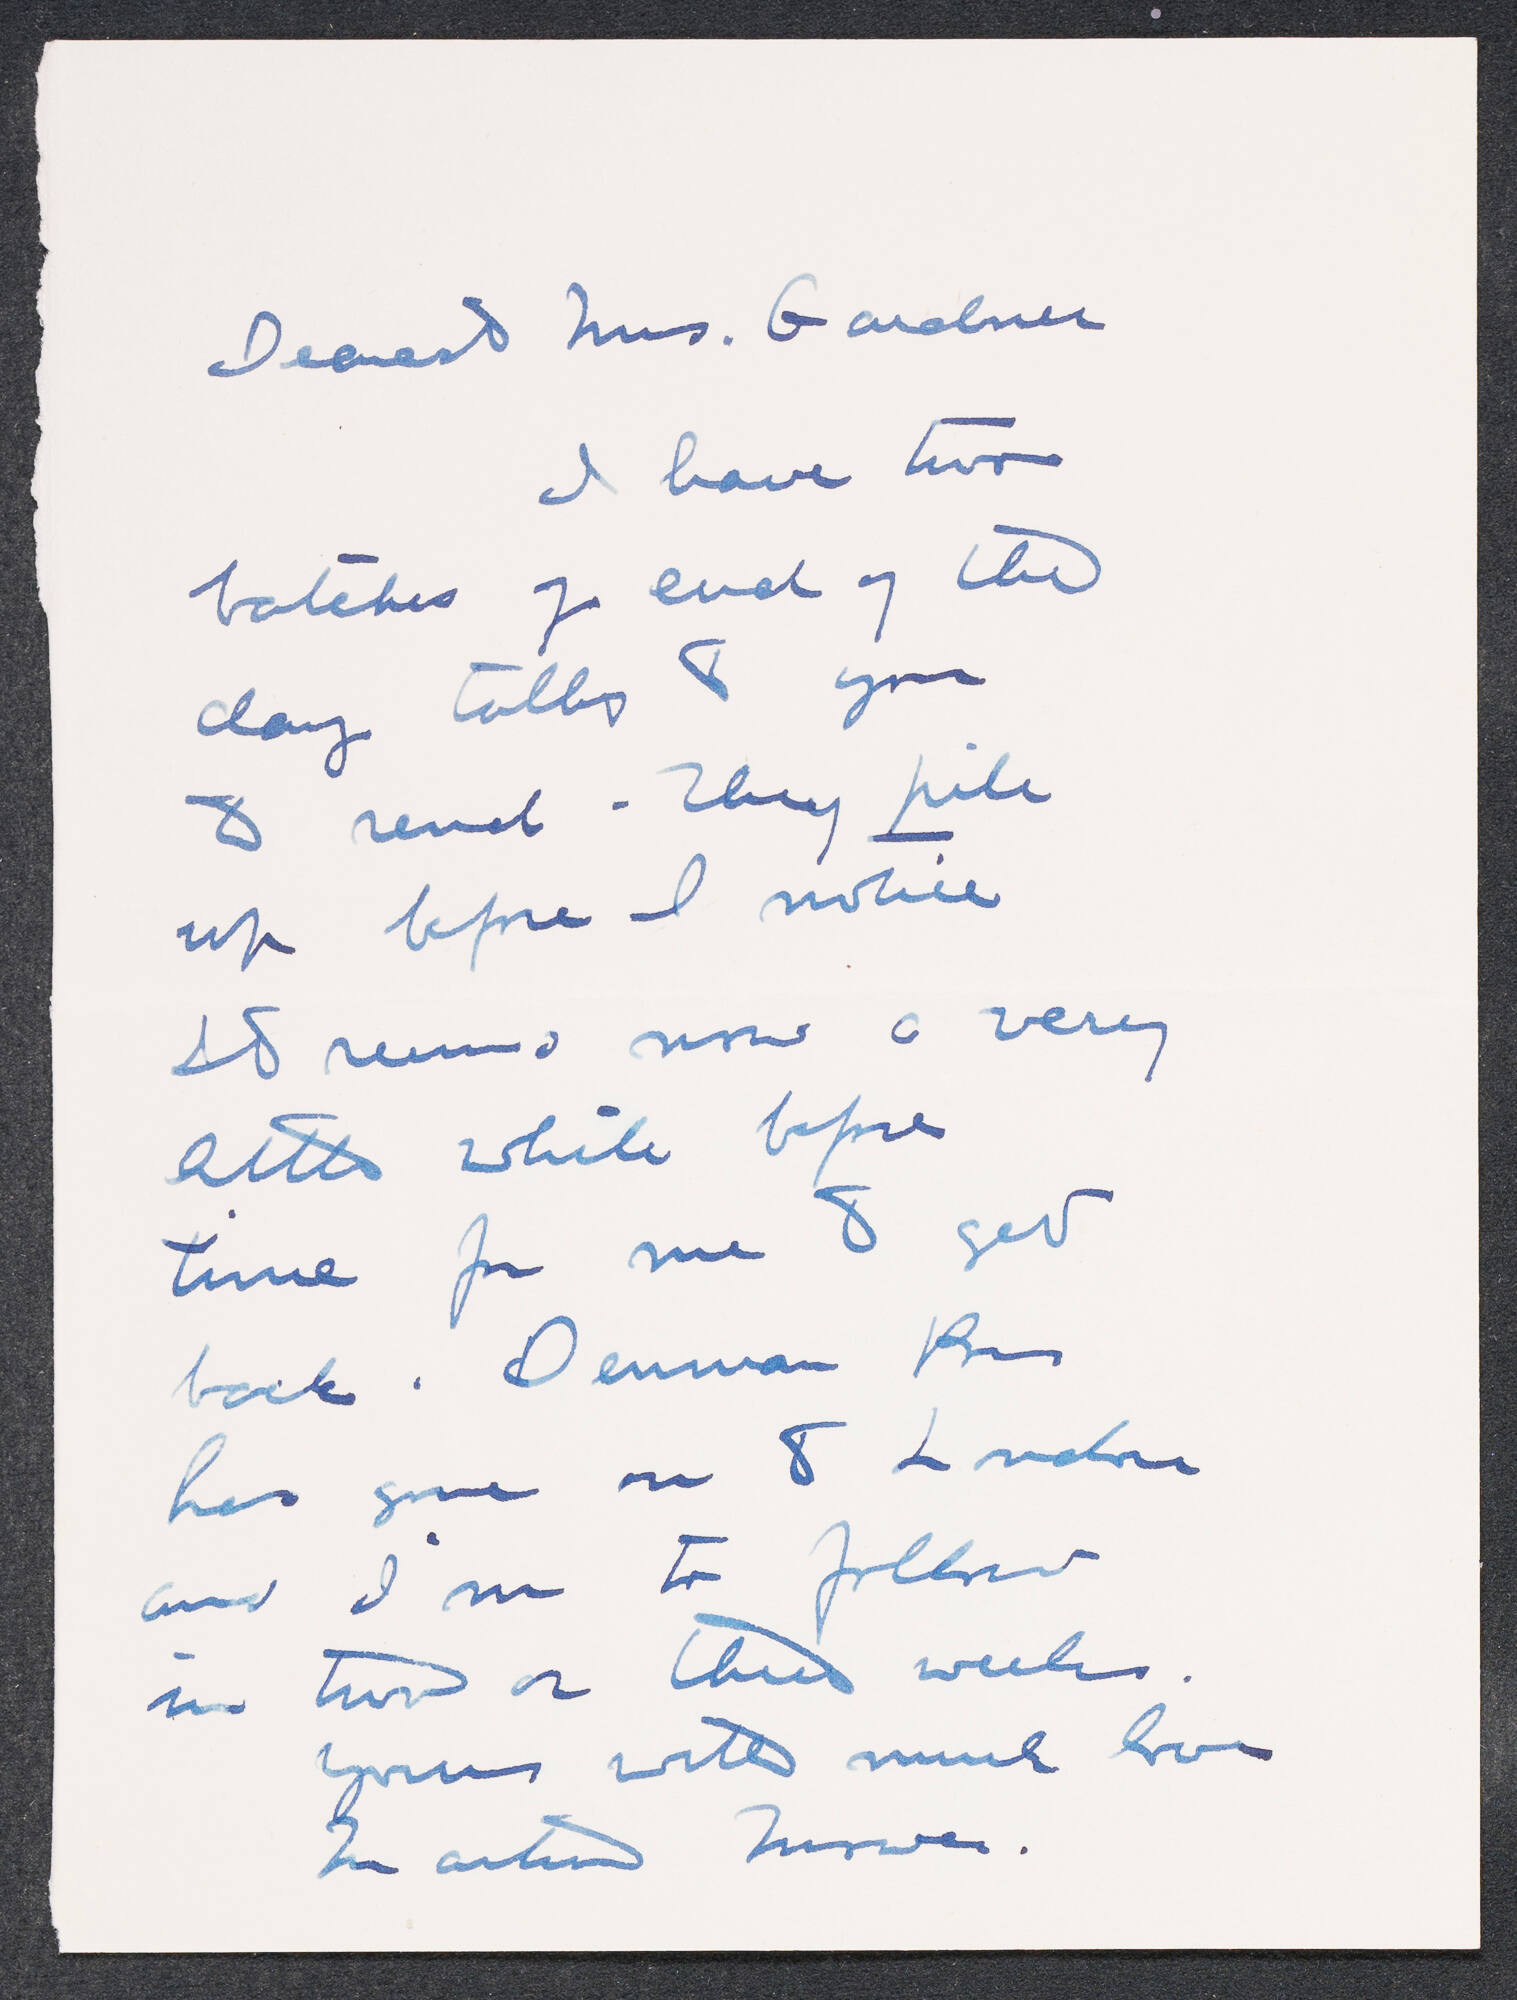 Dearest Mrs. Gardner
I have two
batches of end of the
day talks to you
to send - They pile
up before I notice
It seems now a very
little while before
time for me to get
back. Denman Ross
has gone on to London
and I'm to follow
in two or three weeks.
yours with much love
Martin Mower.